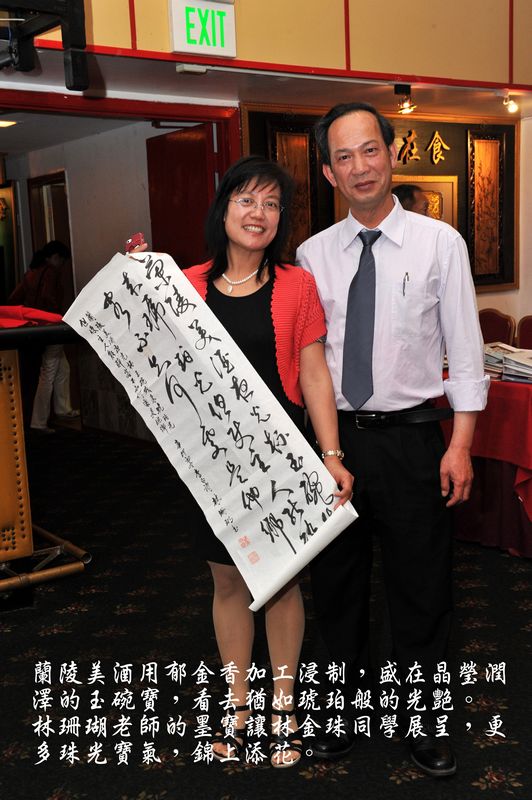 EXIT
食在
蘭陵美酒鬱金香玉碗盛
來琥珀光但使主人能醉
客不知何處是他鄉
蘭陵美酒用郁金香加工浸制，盛在晶瑩潤
澤的玉碗寶，看去猶如琥珀般的光艷。
林珊瑚老師的墨寶讓林金珠同學展呈，更
多珠光寶氣，錦上添花。